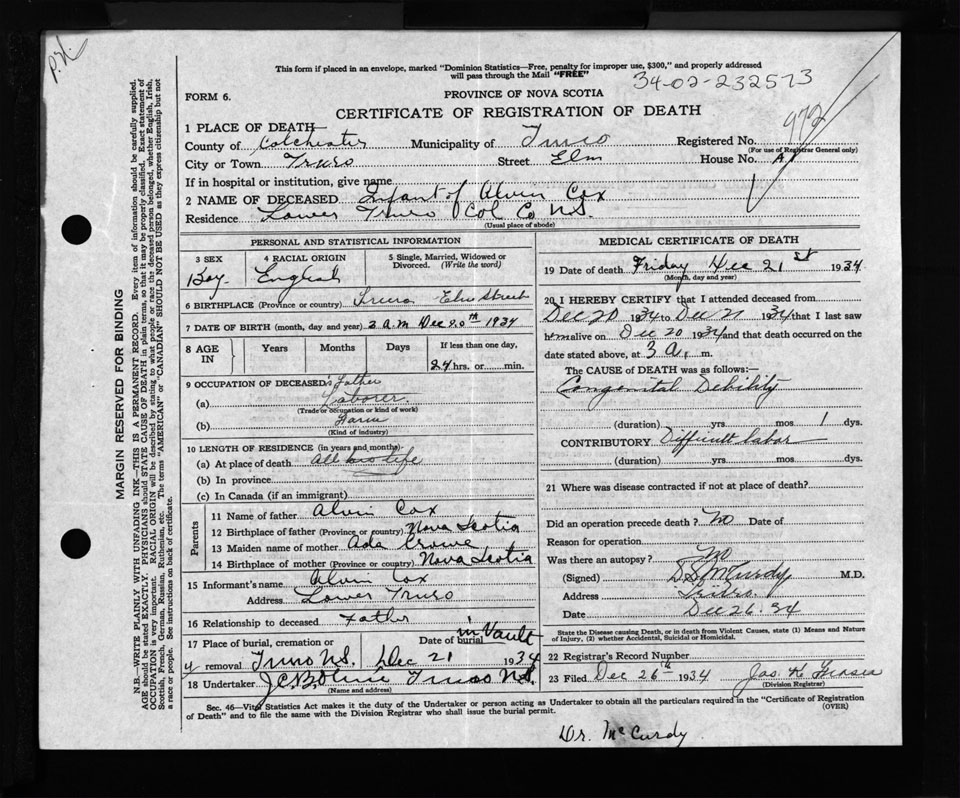 P.N.
This form if placed in an envelope, marked "Dominion Statistics—Free, penalty for improper use, $300," and properly addressed
will pass through the Mail "FREE"
34-02-232573
FORM 6.
PROVINCE OF NOVA SCOTIA
CERTIFICATE OF REGISTRATION OF DEATH
972
1 PLACE OF DEATH—
County of Colchester Municipality of Truro Registered No.
(For use of Registrar General only)
City or Town Truro Street Elm House No.
If in hospital or institution, give name
2 NAME OF DECEASED Infant of Alvin Cox
Residence Lower Truro Col Co N.S.
(Usual place of abode)
PERSONAL AND STATISTICAL INFORMATION
3 SEX 4 RACIAL ORIGIN 5 Single, Married, Widowed or
Divorced. (Write the word)
Boy English
6 BIRTHPLACE (Province or country) Truro Elm Street
7 DATE OF BIRTH (month, day and year) 3 a.m Dec 20th 1934
8 AGE IN Years Months Days If less than one day,
24 hrs. or min.
9 OCCUPATION OF DECEASED's Father
(a) Laborer
(Trade or occupation or kind of work)
(b) Farm
(Kind of industry)
10 LENGTH OF RESIDENCE (in years and months)—
(a) At place of death All his life
(b) In province
(c) In Canada (if an immigrant)
Parents
11 Name of father Alvin Cox
12 Birthplace of father (Province or country) Nova Scotia
13 Maiden name of mother Ada Crowe
14 Birthplace of mother (Province or country) Nova Scotia
15 Informant's name Alvin Cox
Address Lower Truro
16 Relationship to deceased Father
17 Place of burial, cremation or Date of burial in Vault
removal Truro N.S. Dec 21 1934
18 Undertaker Truro N.S.
(Name and address)
MEDICAL CERTIFICATE OF DEATH
19 Date of death Friday Dec 21st 1934
(Month, day and year)
20 I HEREBY CERTIFY that I attended deceased from
Dec 20 1934 to Dec 21 1934 that I last saw
him alive on Dec 20 1934 and that death occurred on the
date stated above, at 3 a. m.
The CAUSE OF DEATH was as follows:—
Congenital Debility
(duration) yrs. mos. 1 dys.
CONTRIBUTORY Difficult labor
(duration) yrs. mos. dys.
21 Where was disease contracted if not at place of death?
Did an operation precede death? No Date of
Reason for operation.
Was there an autopsy? No
(Signed) McCurdy M.D.
Address Truro
Date Dec 26. 34
State the Disease causing Death, or in death from Violent Causes, state (1) Means and Nature
of Injury, (2) whether Accidental, Suicidal or Homicidal.
22 Registrar's Record Number
23 Filed Dec 26th 1934 Jas H Fraser
(Division Registrar)
Sec. 46—Vital Statistics Act makes it the duty of the Undertaker or person acting as Undertaker to obtain all the particulars required in the "Certificate of Registration
of Death" and to file the same with the Division Registrar who shall issue the burial permit. (OVER)
Dr. McCurdy
MARGIN RESERVED FOR BINDING
N.B.—WRITE PLAINLY WITH UNFADING INK—THIS IS A PERMANENT RECORD. Every item of information should be carefully supplied.
AGE should be stated EXACTLY. PHYSICIANS should STATE CAUSE OF DEATH in plain terms, so that it may be properly classified. Exact statement of
OCCUPATION is very important. RACIAL ORIGIN will be described by stating to what people or race the deceased person belonged, whether English, Irish,
Scottish, French, German, Russian, Ruthenian, etc. The terms "AMERICAN" or "CANADIAN" SHOULD NOT BE USED as they express citizenship but not
a race or people. See instructions on back of certificate.